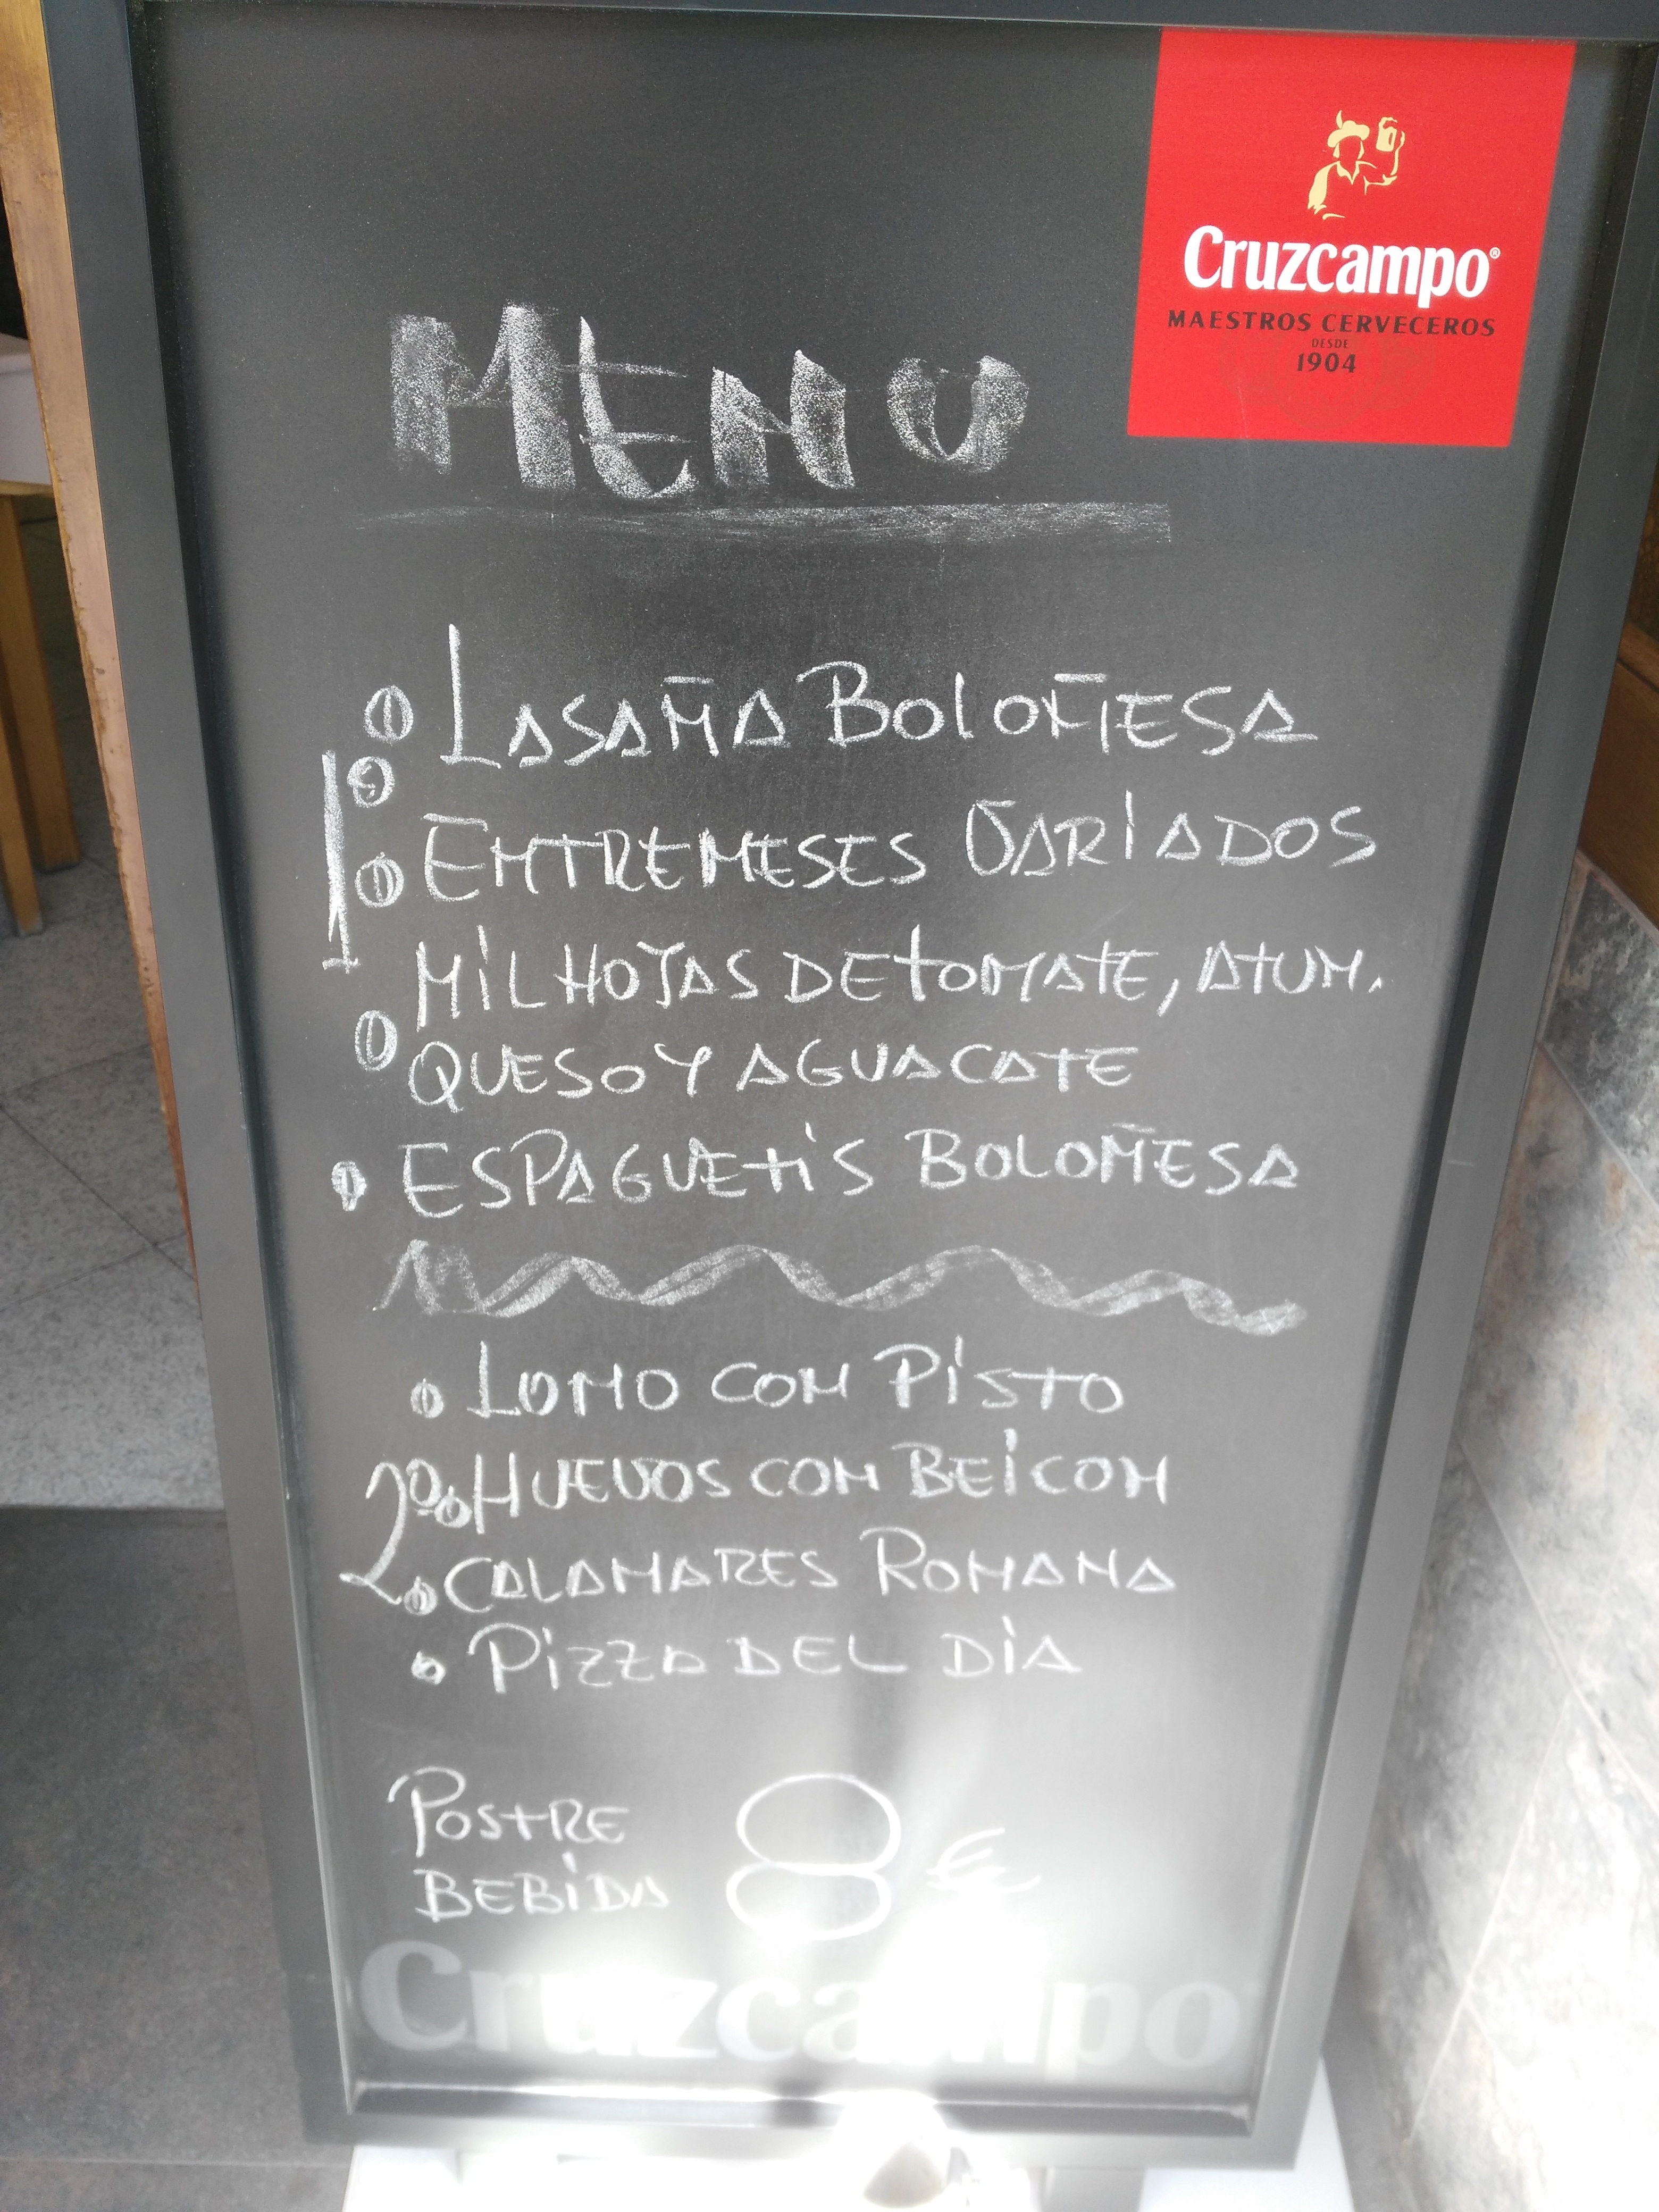 Cruzcampo®
MAESTROS CERVECEROS
DESDE
1904
MENU
1º
LASAÑA BOLOÑESA
ENTREMESES VARIADOS
MILHOJAS DE TOMATE, ATUN,
QUESO Y AGUACATE
ESPAGUETIS BOLOÑESA
2º
LOMO CON PISTO
HUEVOS CON BEICON
CALAMARES ROMANA
PIZZA DEL DIA
POSTRE
BEBIDA
8 €
Cruzcampo